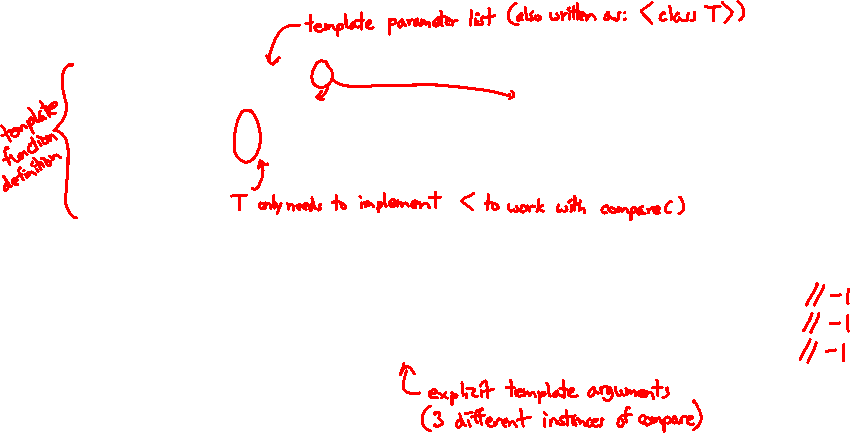 template parameter list (also written as: <class T>)
template
function
definition
T only needs to implement < to work with compare()
// -1
// -1
// -1
explicit template arguments
(3 different instances of compare)